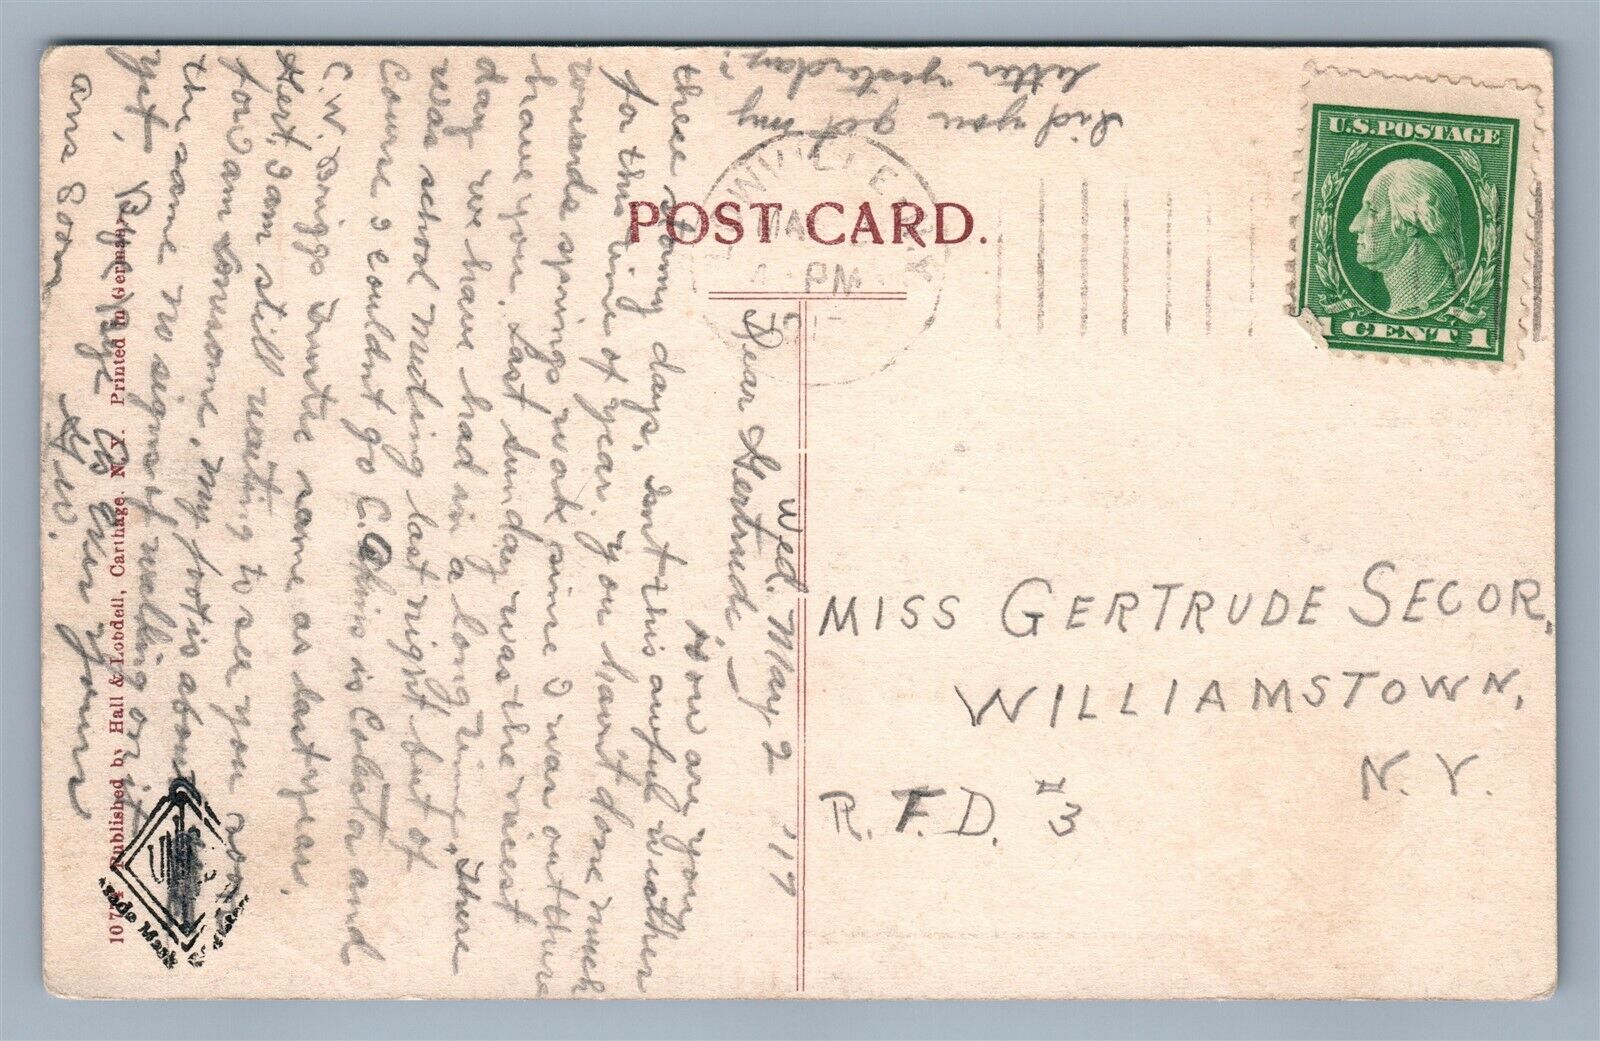 POST CARD.
U.S. POSTAGE
1 CENT 1
PM
Did you get my
letter yesterday?
Wed. May 2 '17
Dear Gertrude,
How are you
these stormy days. Isnt this awful weather
for this time of year. You havent done much
towards springs work since I was out there
have you. Last Sunday was the nicest
day we have had in a long time. There
was school meeting last night but of
course I couldnt go C. is Colector and
C.W. Briggs Trustee same as last year.
Gert. I am still waiting to see you
for I am lonesome. My foot is about
the same no signs of walking on it
yet. Bye Bye as ever yours
ans soon
MISS GERTRUDE SECOR,
WILLIAMSTOWN,
N.Y.
R.F.D. #3
Published by Hall & Lobdell, Carthage, N. Y. Printed in Germany
Trade Mark